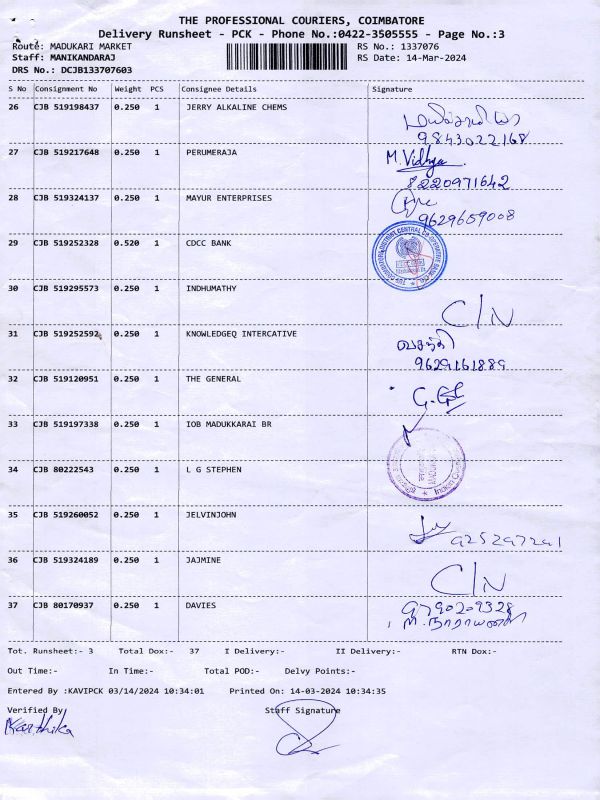 THE PROFESSIONAL COURIERS, COIMBATORE
Delivery Runsheet - PCK - Phone No.:0422-3505555 - Page No.:3
Route: MADUKARI MARKET RS No.: 1337076
Staff: MANIKANDARAJ RS Date: 14-Mar-2024
DRS No.: DCJB133707603
S No Consignment No Weight PCS Consignee Details Signature
26 CJB 519198437 0.250 1 JERRY ALKALINE CHEMS
9843022168
27 CJB 519217648 0.250 1 PERUMERAJA M.Vidhya
8220971642
28 CJB 519324137 0.250 1 MAYUR ENTERPRISES
9629659008
29 CJB 519252328 0.520 1 CDCC BANK
30 CJB 519295573 0.250 1 INDHUMATHY C/N
31 CJB 519252592 0.250 1 KNOWLEDGEQ INTERCATIVE
9629161889
32 CJB 519120951 0.250 1 THE GENERAL
33 CJB 519197338 0.250 1 IOB MADUKKARAI BR
34 CJB 80222543 0.250 1 L G STEPHEN
35 CJB 519260052 0.250 1 JELVINJOHN
36 CJB 519324189 0.250 1 JAJMINE C/N
37 CJB 80170937 0.250 1 DAVIES 9790209328
Tot. Runsheet:- 3 Total Dox:- 37 I Delivery:- II Delivery:- RTN Dox:-
Out Time:- In Time:- Total POD:- Delvy Points:-
Entered By :KAVIPCK 03/14/2024 10:34:01 Printed On: 14-03-2024 10:34:35
Verified By Staff Signature
Karthika